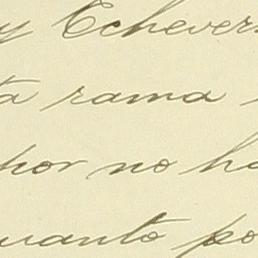 y Echever
ta rama
por no ha
cuanto po